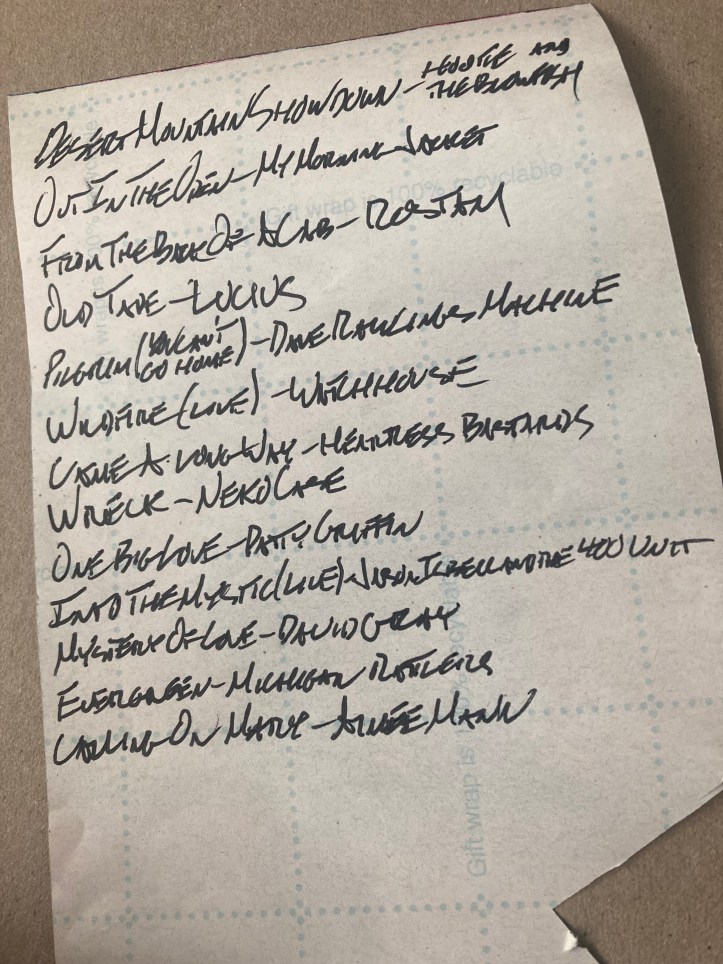 DESERT MOUNTAIN SHOWDOWN - HOOTIE AND THE BLOWFISH
OUT IN THE OPEN - MY MORNING JACKET
Gift wrap is 100% recyclable
FROM THE BACK OF A CAB - ROSTAM
OLD TAPE - LUCIUS
PILGRIM (YOU CAN'T GO HOME) - DAVE RAWLINGS MACHINE
WILDFIRE (LIVE) - WATCHHOUSE
CAME A LONG WAY - HEARTLESS BASTARDS
WRECK - NEKO CASE
ONE BIG LOVE - PATTY GRIFFIN
INTO THE MYSTIC (LIVE) - JASON ISBELL AND THE 400 UNIT
MYSTERY OF LOVE - DAVID GRAY
EVERGREEN - MICHIGAN RATTLERS
CALLING ON MARY - AIMEE MANN
Gift wrap is